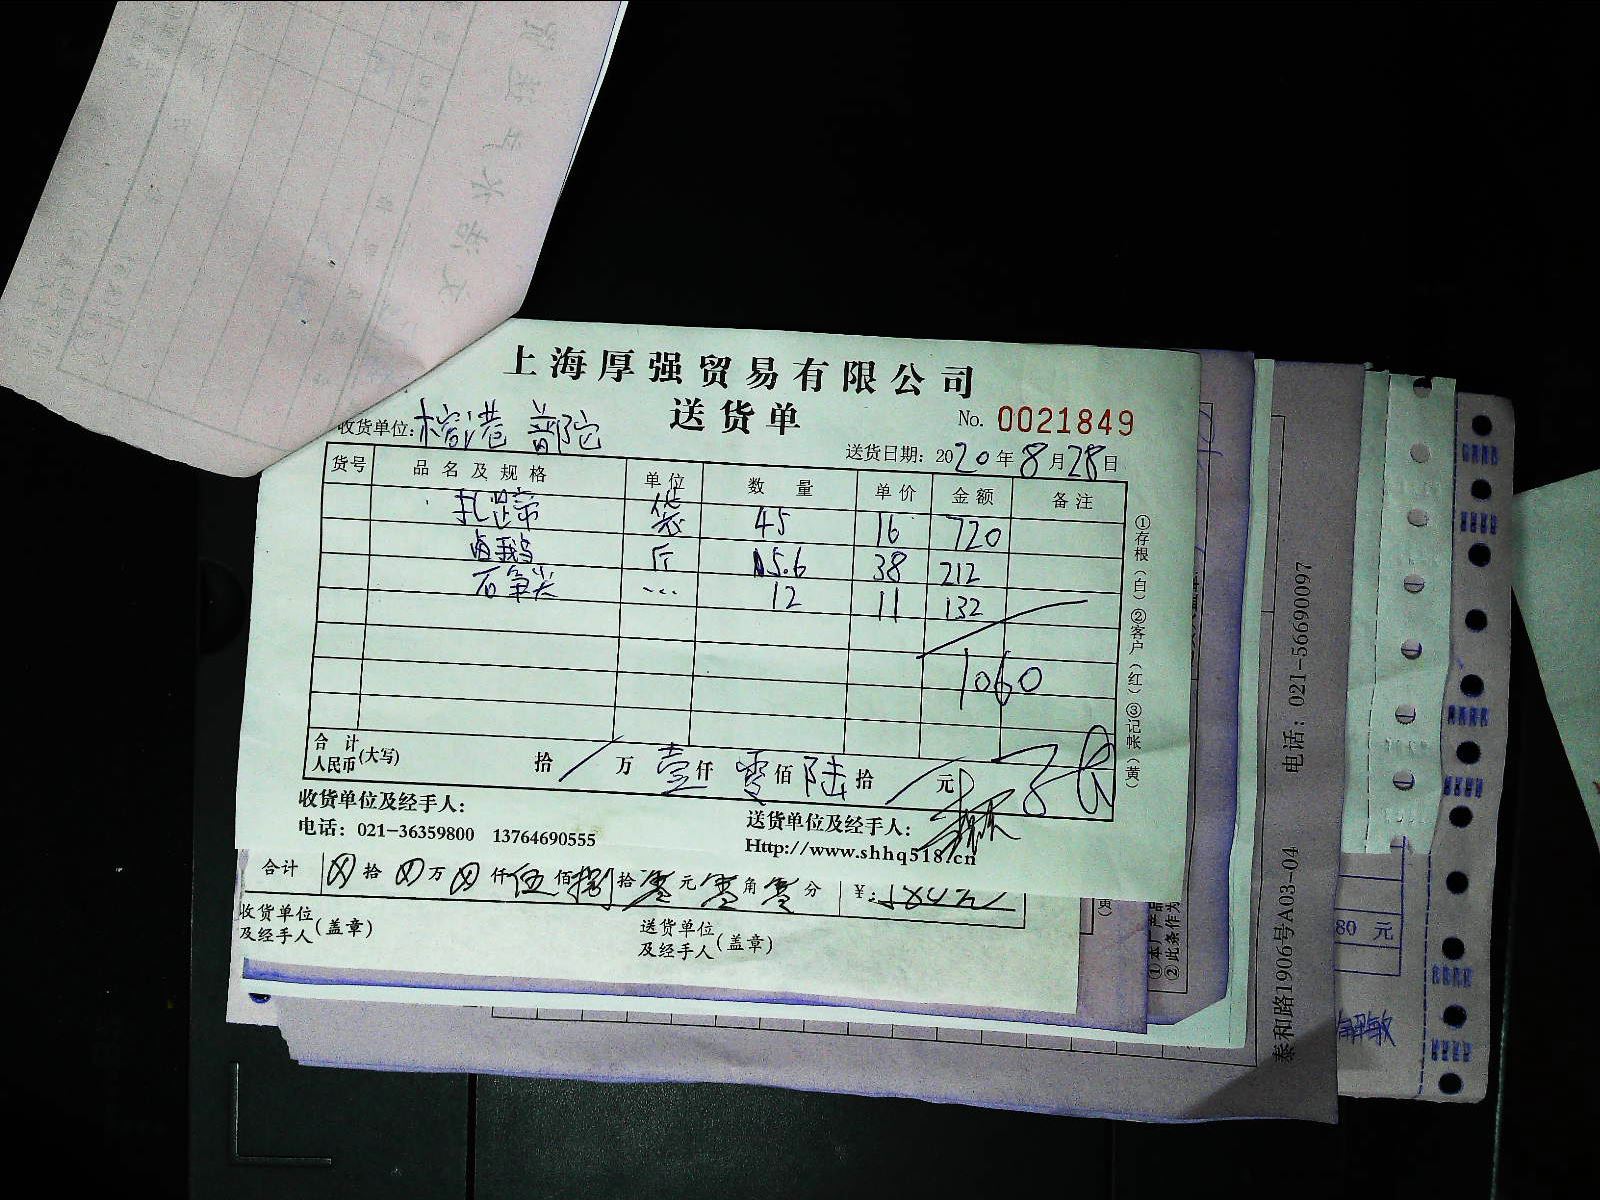 上海厚强贸易有限公司
送货单
No. 0021849
收货单位: 榕港 普陀
送货日期: 2020年8月28日
货号 品名及规格 单位 数量 单价 金额 备注
扎蹄 袋 45 16 720
卤鹅 斤 5.6 38 212
石笋尖 ... 12 11 132
1060
合计人民币(大写) 拾 / 万 壹仟 零佰 陆拾 / 元
收货单位及经手人:
送货单位及经手人:
电话: 021-36359800 13764690555
Http://www.shhq518.cn
①存根(白)②客户(红)③记帐(黄)
合计 拾 万 仟 伍佰 捌拾 零元 零角 零分 ¥:
收货单位及经手人(盖章)
送货单位及经手人(盖章)
泰和路1906号A03-04 电话: 021-56690097
80 元
①本厂产品
②此条作为